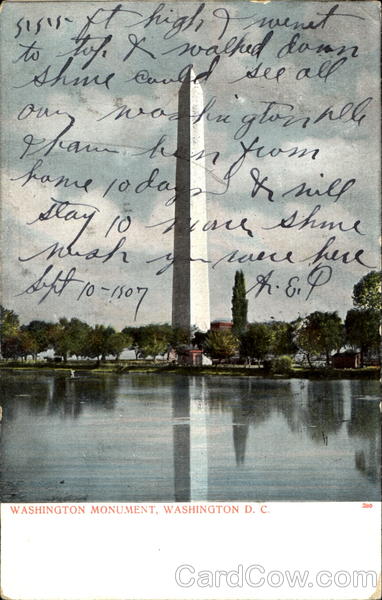 555 ft high & went
to top & walked down
shure could see all
over washington
& have been from
home 10 days & will
stay 10 more shure
wish you were here
Sept 10-1907
A. E. P
WASHINGTON MONUMENT, WASHINGTON D. C.
CardCow.com®